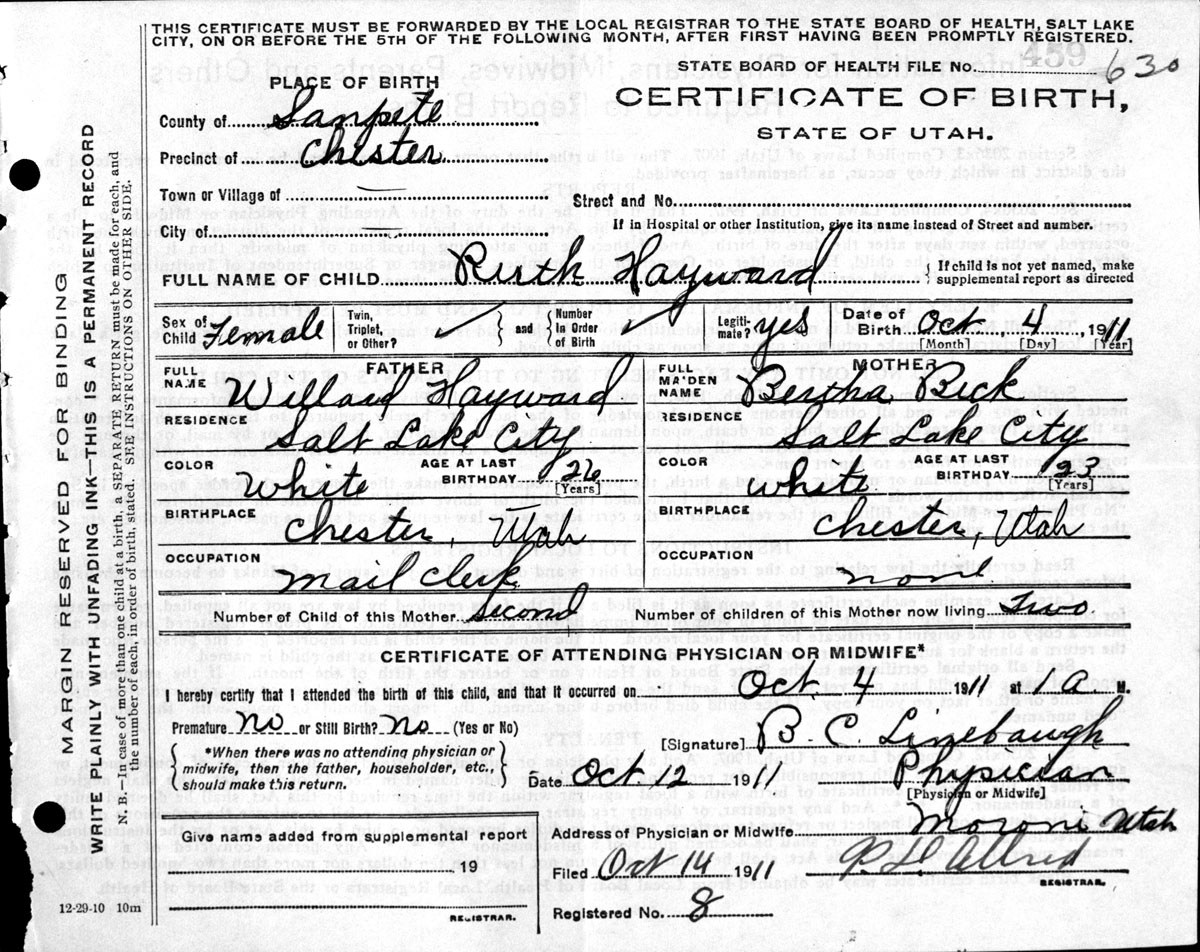 THIS CERTIFICATE MUST BE FORWARDED BY THE LOCAL REGISTRAR TO THE STATE BOARD OF HEALTH, SALT LAKE
CITY, ON OR BEFORE THE 5TH OF THE FOLLOWING MONTH, AFTER FIRST HAVING BEEN PROMPTLY REGISTERED.
STATE BOARD OF HEALTH FILE No. 459 630
PLACE OF BIRTH
CERTIFICATE OF BIRTH,
STATE OF UTAH.
County of Sanpete
Precinct of Chester
Town or Village of
Street and No.
City of
If in Hospital or other Institution, give its name instead of Street and number.
FULL NAME OF CHILD Ruth Hayward { If child is not yet named, make
supplemental report as directed
Sex of Child Female Twin, Triplet, or Other? { and } Number In Order of Birth Legiti- mate? yes Date of Birth Oct 4 1911
[Month] [Day] [Year]
FATHER
FULL NAME Willard Hayward
RESIDENCE
Salt Lake City
COLOR White AGE AT LAST BIRTHDAY 26 [Years]
BIRTHPLACE
Chester, Utah
OCCUPATION
Mail Clerk
Number of Child of this Mother Second
MOTHER
FULL MAIDEN NAME Bertha Reck
RESIDENCE
Salt Lake City
COLOR White AGE AT LAST BIRTHDAY 23 [Years]
BIRTHPLACE
Chester, Utah
OCCUPATION
none
Number of children of this Mother now living Two
CERTIFICATE OF ATTENDING PHYSICIAN OR MIDWIFE*
I hereby certify that I attended the birth of this child, and that it occurred on Oct. 4 1911 at 1 A M.
Premature no or Still Birth? no (Yes or No)
{ *When there was no attending physician or
midwife, then the father, householder, etc.,
should make this return. }
[Signature] B. C. Linebaugh
Date Oct 12 1911 Physician
[Physician or Midwife]
Given name added from supplemental report
19
REGISTRAR.
Address of Physician or Midwife Moroni Utah
Filed Oct 14 1911 Allred
REGISTRAR.
Registered No. 8
12-29-10 10m
MARGIN RESERVED FOR BINDING
WRITE PLAINLY WITH UNFADING INK—THIS IS A PERMANENT RECORD
N. B.—In case of more than one child at a birth, a SEPARATE RETURN must be made for each, and
the number of each, in order of birth, stated. SEE INSTRUCTIONS ON OTHER SIDE.